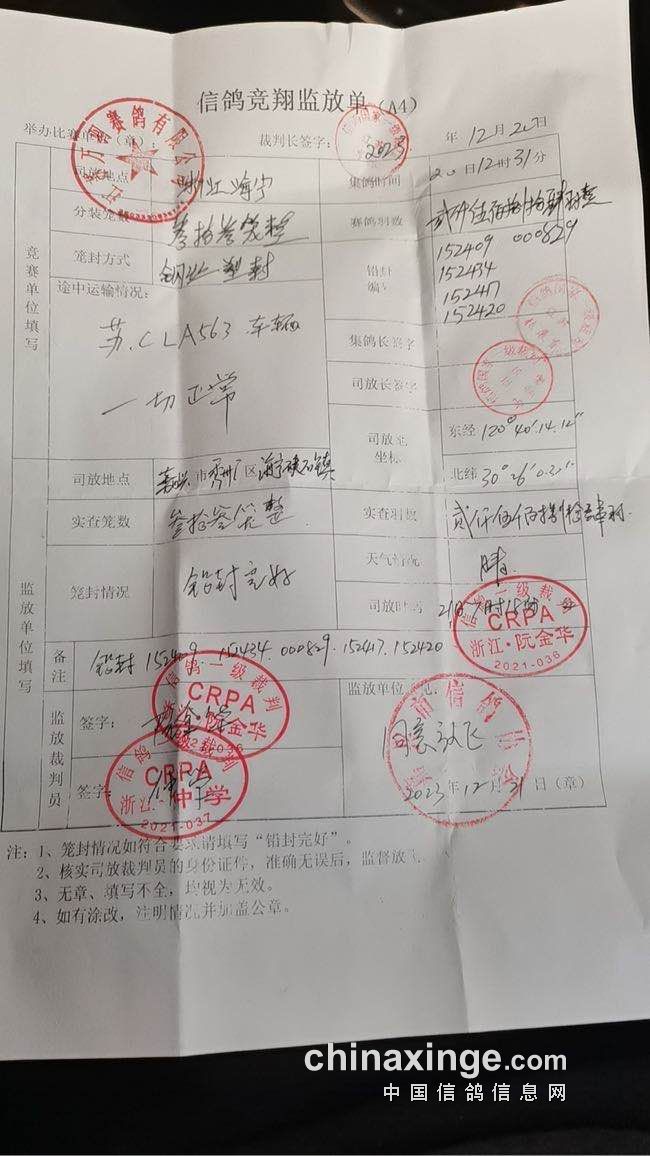 信鸽竞翔监放单(A4)
举办比赛单位(章): 裁判长签字: 2023 年12月20日
司放地点 浙江海宁 集鸽时间 20日12时31分
分装笼数 叁拾叁笼整 赛鸽羽数
笼封方式 塑封 铅封
编号
152409 000829
152434
152417
152420
竞赛单位填写
途中运输情况:
苏.CLA563 车辆
一切正常
集鸽长签字
司放长签字
司放地
坐标
东经 120°40'.14.12"
北纬 30°26'
司放地点 嘉兴市秀州区海宁硖石镇
实查笼数 叁拾叁笼整 实查羽数
笼封情况 铅封完好 天气情况 晴
司放时间 21日7时15
监放单位填写
备注 铅封 152409. 152434. 000829. 152417. 152420
监放裁判员
签字:
签字:
监放单位意见:
同意放飞
2023年12月21日(章)
信鸽一级裁判
CRPA
浙江·阮金华
2021-036
信鸽一级裁判
CRPA
金华
信鸽 裁判
CRPA
浙江·
2021-037
赛鸽有限公
市信鸽协会
注:1、笼封情况如符合要求请填写“铅封完好”。
2、核实司放裁判员的身份证件,准确无误后,监督放飞。
3、无章、填写不全,均视为无效。
4、如有涂改,注明情况并加盖公章。
chinaxinge.com
中国信鸽信息网